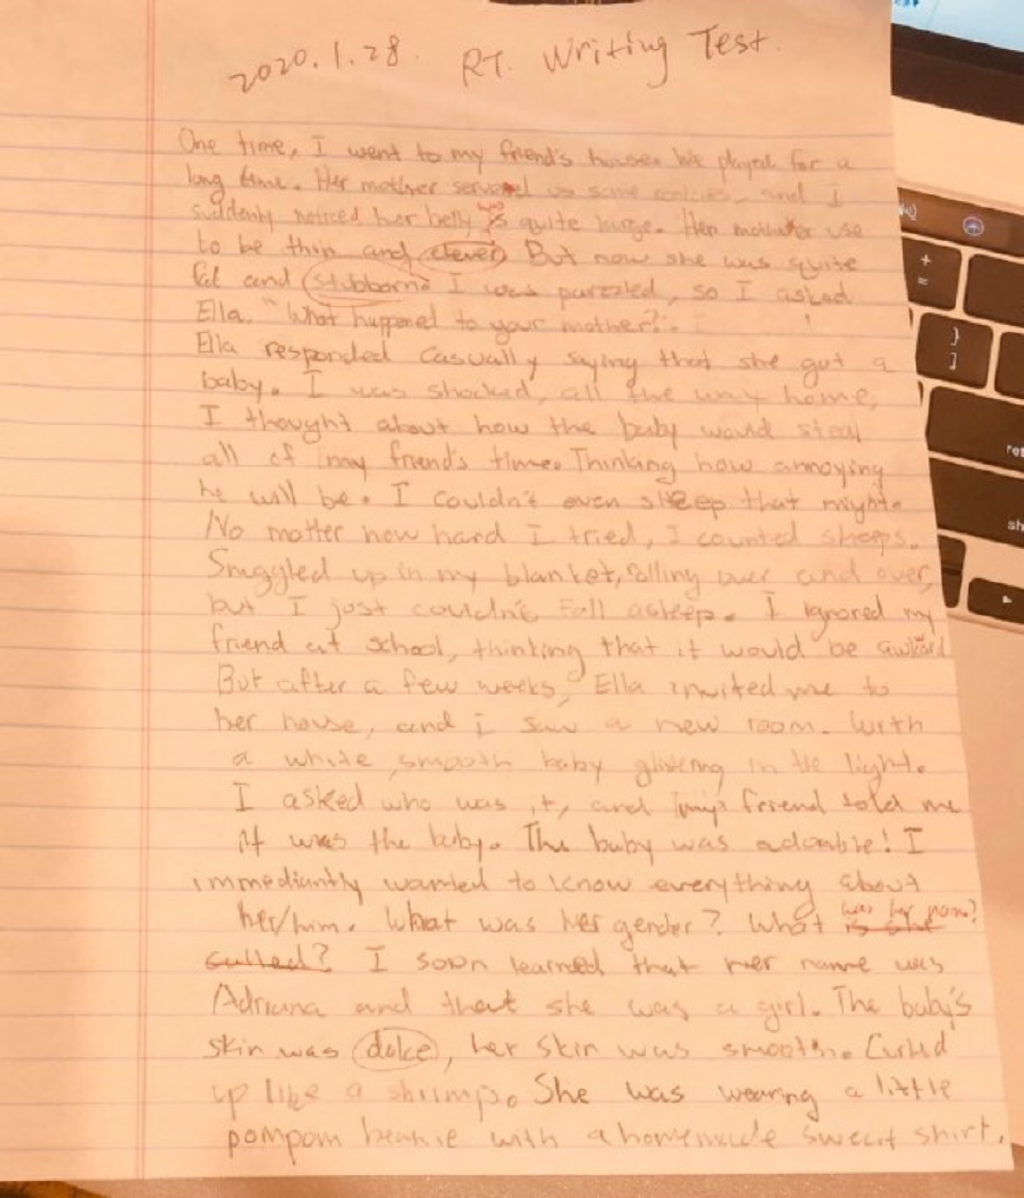 2020.1.28. RT. Writing Test.
One time, I went to my friend's house. We played for a
long time. Her mother served us some cookies, and I
suddenly noticed her belly was is quite large. Her mother use
to be thin and clever. But now she was quite
fat and stubborn. I was puzzled, so I asked
Ella, "What happened to your mother?".
Ella responded casually saying that she got a
baby. I was shocked, all the way home,
I thought about how the baby would steal
all of my friend's time. Thinking how annoying
he will be. I couldn't even sleep that night.
No matter how hard I tried, I counted sheeps.
Snuggled up in my blanket, rolling over and over,
but I just couldn't fall asleep. I ignored my
friend at school, thinking that it would be
But after a few weeks, Ella invited me to
her house, and i saw a new room. With
a white, smooth baby glistering in the light.
I asked who was it, and my friend told me
it was the baby. The baby was adorable! I
immediantly wanted to know everything about
her/him. What was her gender? What was her name? is she
called? I soon learned that her name was
Adriana and that she was a girl. The baby's
skin was dolce, her skin was smooth. Curled
up like a shrimp. She was wearing a little
pompom beanie with a homemade sweat shirt.
+
=
}
]
ret
sh